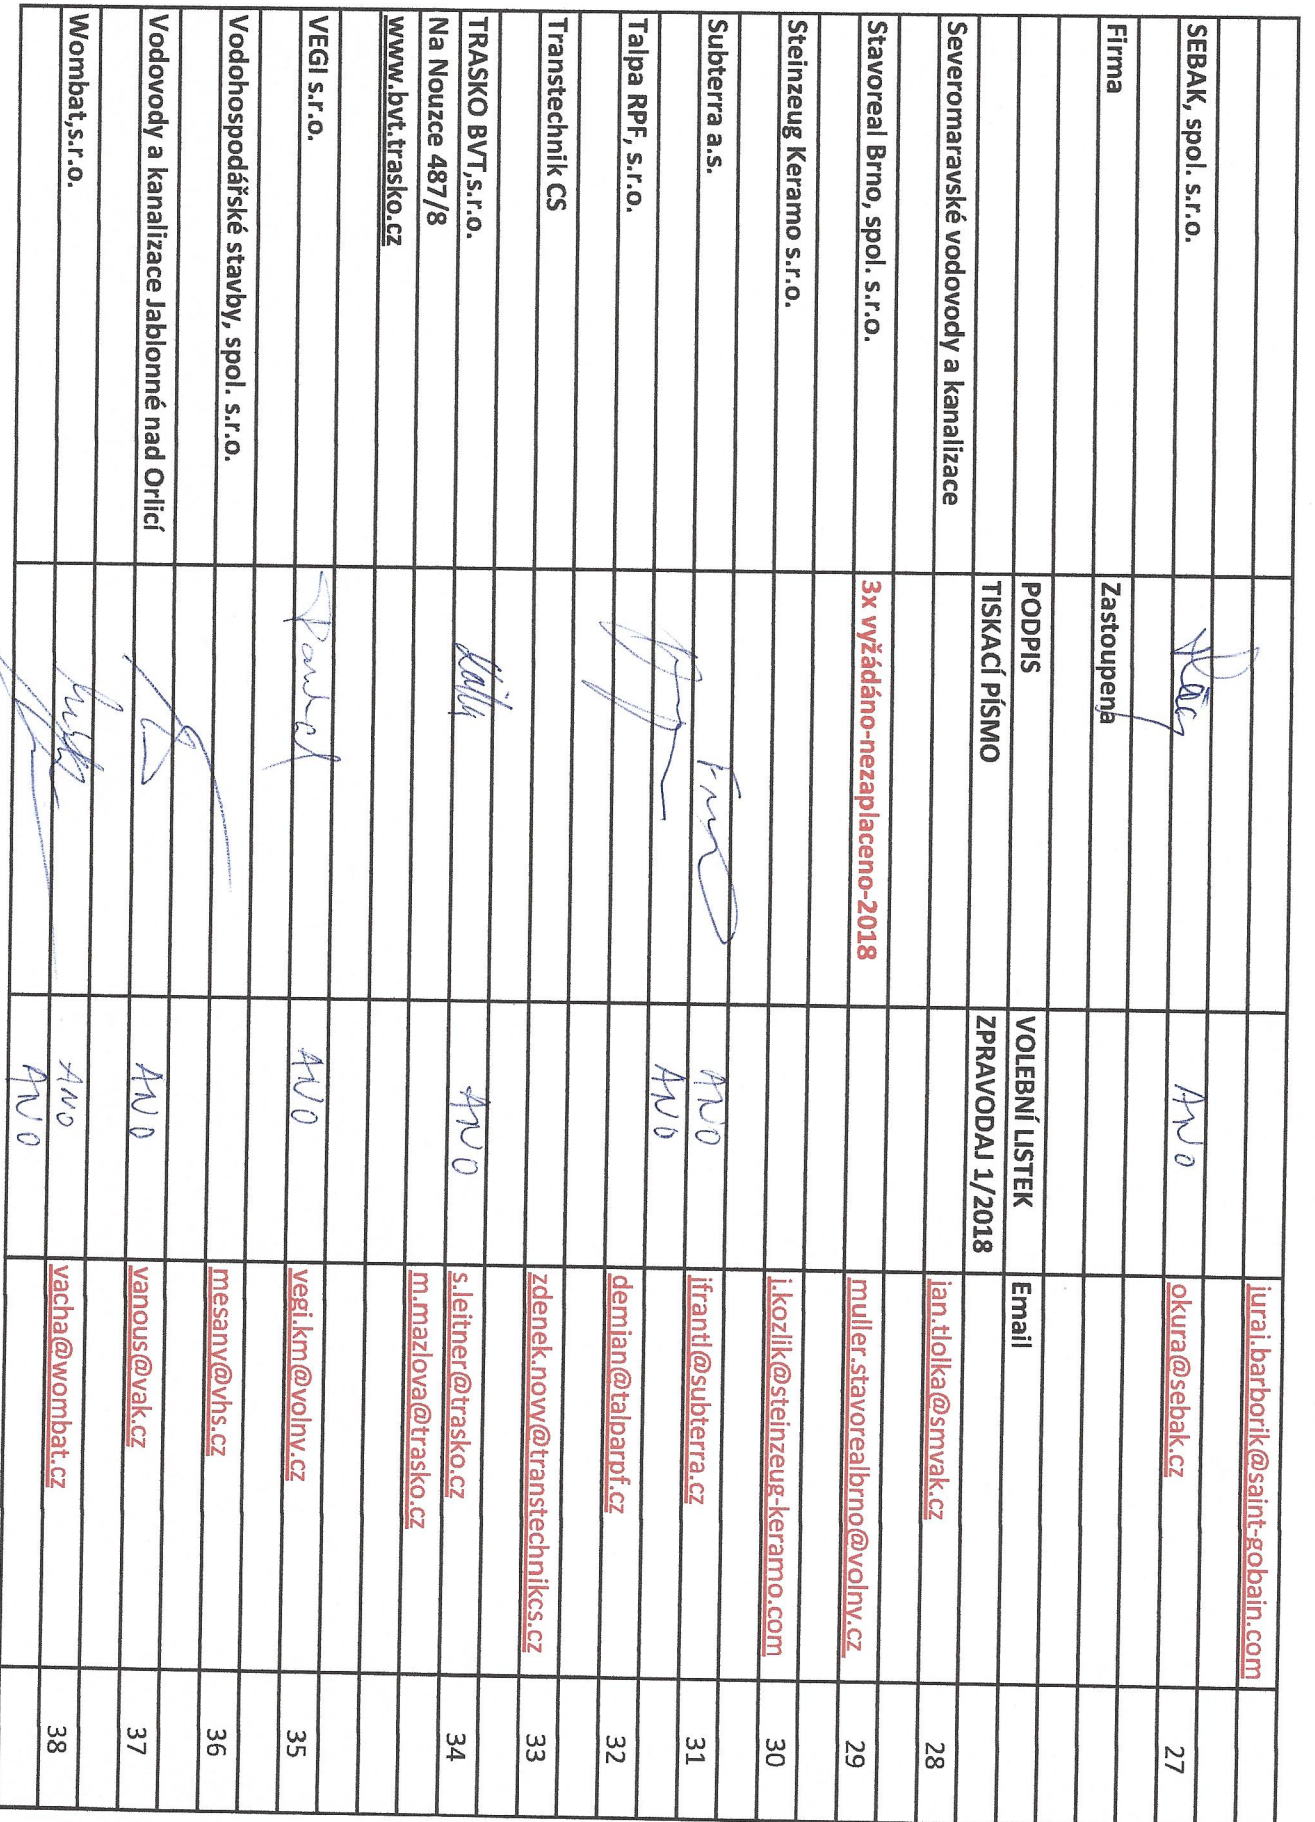 jurai.barborik@saint-gobain.com
SEBAK, spol. s.r.o. ANO okura@sebak.cz 27
Firma Zastoupena
PODPIS VOLEBNÍ LISTEK Email
TISKACÍ PÍSMO ZPRAVODAJ 1/2018
Severomaravské vodovody a kanalizace jan.tlolka@smvak.cz 28
Stavoreal Brno, spol. s.r.o. 3x vyžádáno-nezaplaceno-2018 muller.stavorealbrno@volny.cz 29
Steinzeug Keramo s.r.o. j.kozlik@steinzeug-keramo.com 30
Subterra a.s. ANO ifrantl@subterra.cz 31
Talpa RPF, s.r.o. ANO demjan@talparpf.cz 32
Transtechnik CS zdenek.novy@transtechnikcs.cz 33
TRASKO BVT,s.r.o. ANO s.leitner@trasko.cz 34
Na Nouzce 487/8 m.mazlova@trasko.cz
www.bvt.trasko.cz
VEGI s.r.o. ANO vegi.km@volny.cz 35
Vodohospodářské stavby, spol. s.r.o. mesany@vhs.cz 36
Vodovody a kanalizace Jablonné nad Orlicí ANO vanous@vak.cz 37
Wombat,s.r.o. ANO vacha@wombat.cz 38
ANO